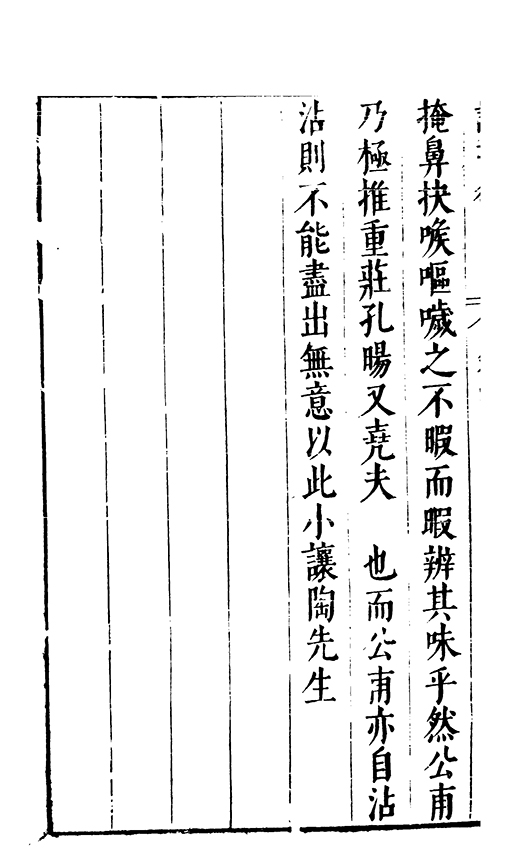 掩鼻抉喉嘔噦之不暇而暇辨其味乎然公甫
乃極推重莊孔暘又堯夫　也而公甫亦自沾
沾則不能盡出無意以此小讓陶先生